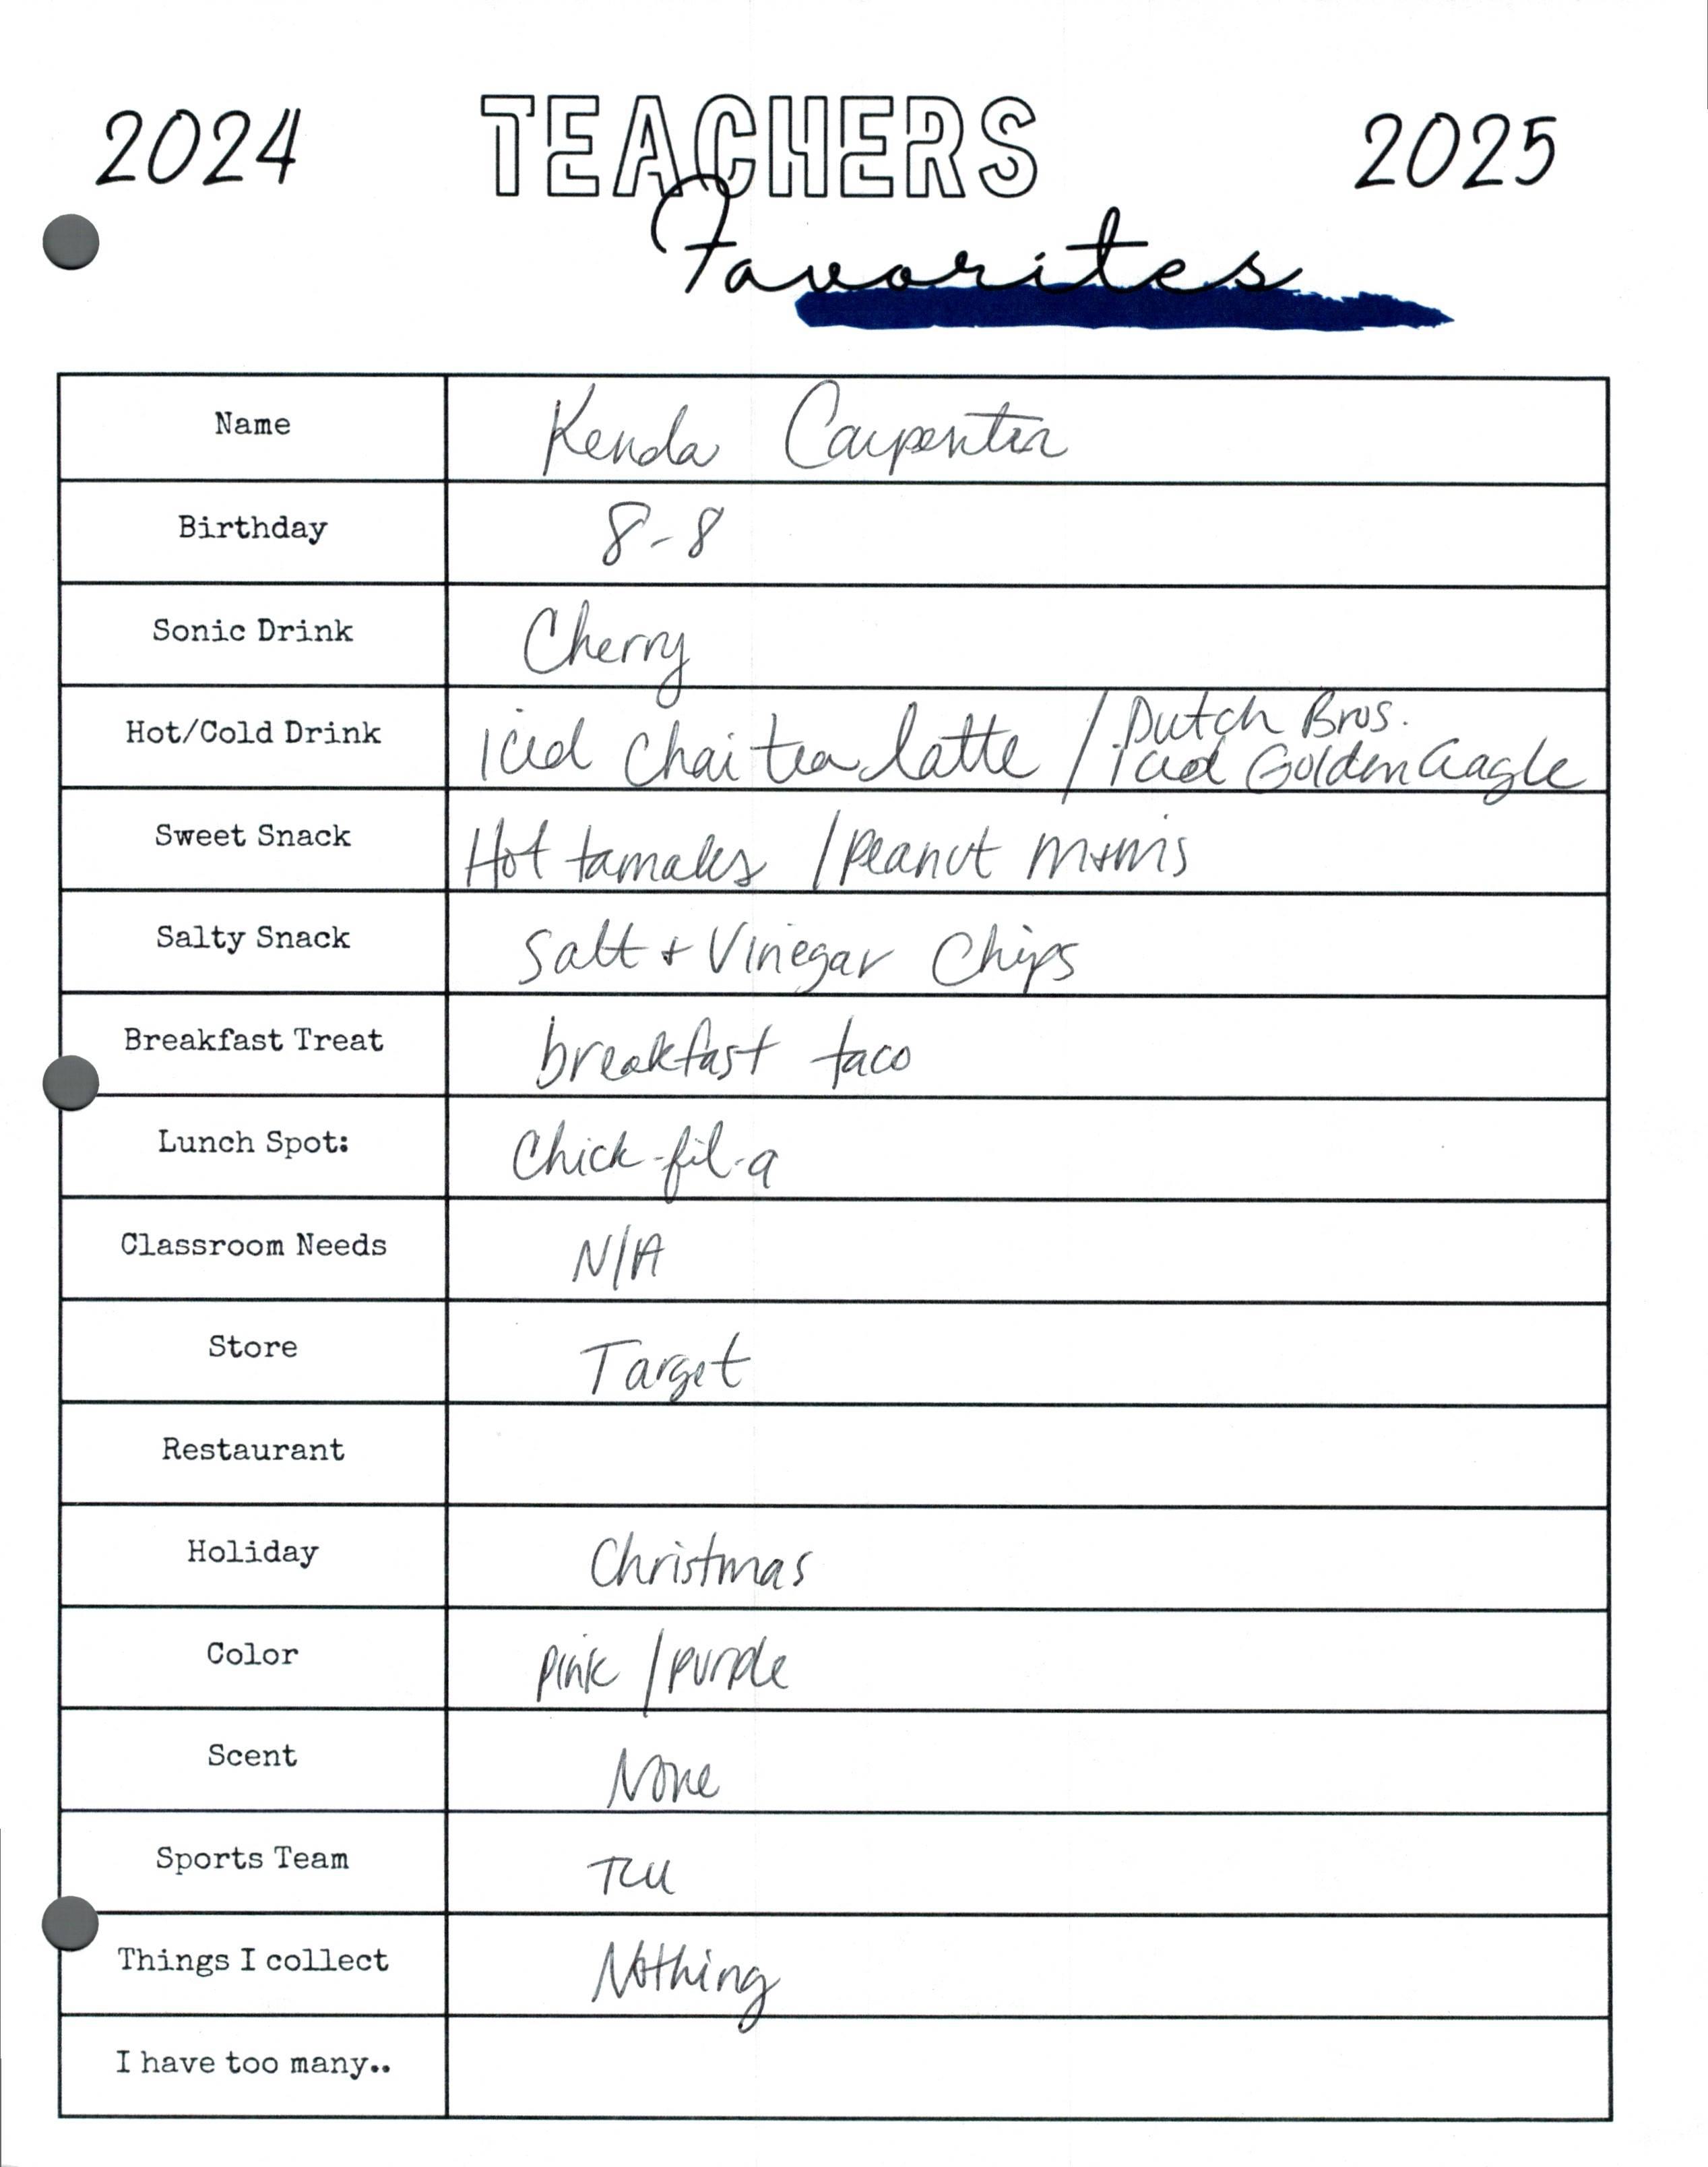 2024 TEACHERS 2025
Favorites
Name Kenda Carpenter
Birthday 8-8
Sonic Drink Cherry
Hot/Cold Drink iced chai tea latte / Dutch Bros.
iced Golden Eagle
Sweet Snack Hot tamales / Peanut m+m's
Salty Snack Salt + Vinegar Chips
Breakfast Treat breakfast taco
Lunch Spot: Chick-fil-a
Classroom Needs N/A
Store Target
Restaurant
Holiday Christmas
Color pink / purple
Scent None
Sports Team TCU
Things I collect Nothing
I have too many..